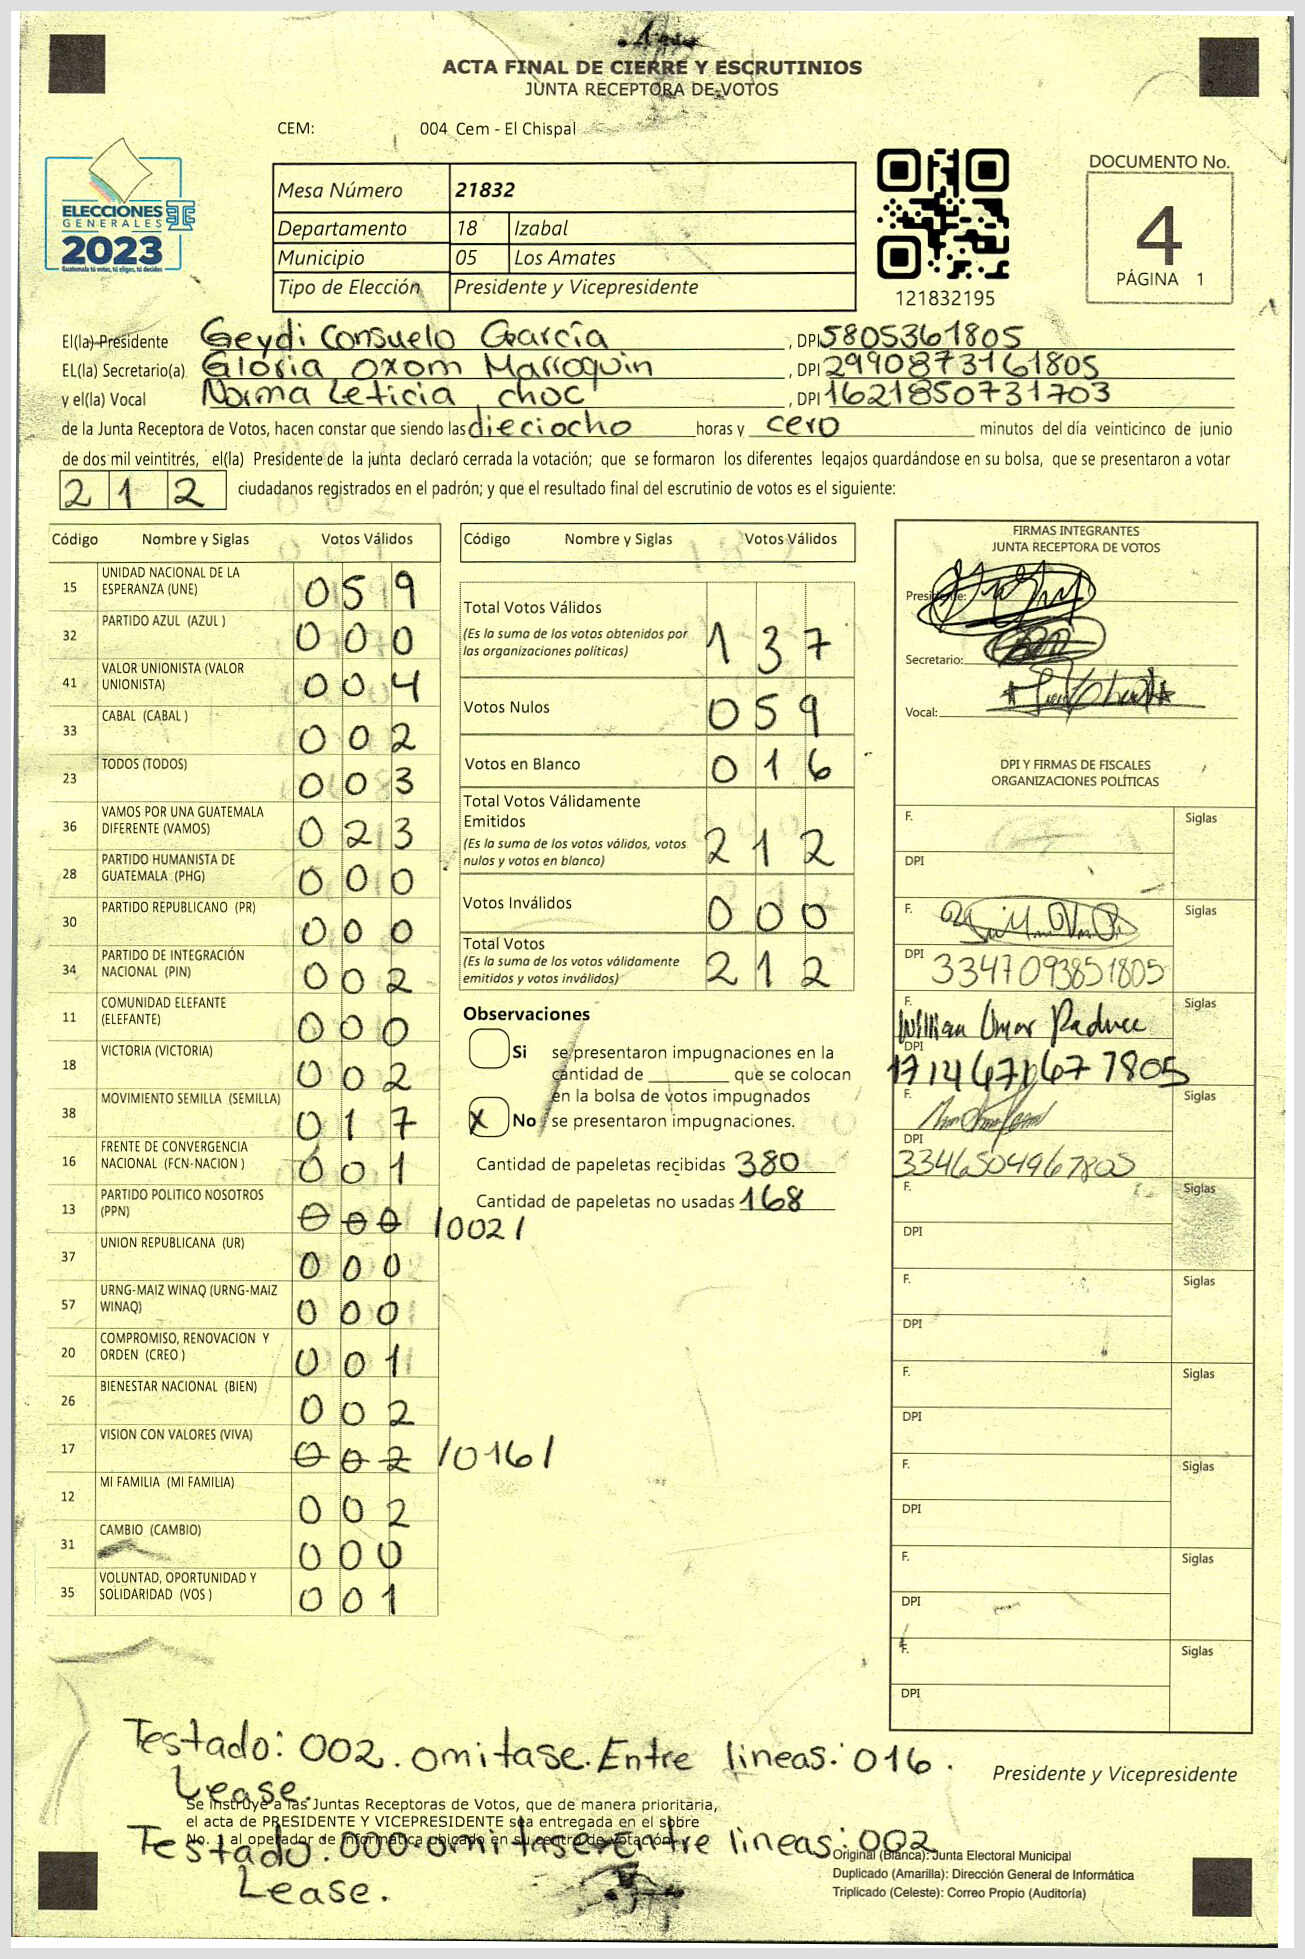 ACTA FINAL DE CIERRE Y ESCRUTINIOS
JUNTA RECEPTORA DE VOTOS
CEM: 004 Cem - El Chispal
ELECCIONES
GENERALES
2023
Guatemala tú votas, tú eliges, tú decides
Mesa Número 21832
Departamento 18 Izabal
Municipio 05 Los Amates
Tipo de Elección Presidente y Vicepresidente
121832195
DOCUMENTO No.
4
PÁGINA 1
El(la) Presidente Geydi Consuelo García , DPI 5805361805
EL(la) Secretario(a) Gloria Oxom Marroquin , DPI 2990873161805
y el(la) Vocal Norma Leticia choc , DPI 1621850731703
de la Junta Receptora de Votos, hacen constar que siendo las dieciocho horas y cero minutos del día veinticinco de junio
de dos mil veintitrés, el(la) Presidente de la junta declaró cerrada la votación; que se formaron los diferentes legajos guardándose en su bolsa, que se presentaron a votar
212 ciudadanos registrados en el padrón; y que el resultado final del escrutinio de votos es el siguiente:
Código Nombre y Siglas Votos Válidos
15 UNIDAD NACIONAL DE LA ESPERANZA (UNE) 059
32 PARTIDO AZUL (AZUL ) 000
41 VALOR UNIONISTA (VALOR UNIONISTA) 004
33 CABAL (CABAL ) 002
23 TODOS (TODOS) 003
36 VAMOS POR UNA GUATEMALA DIFERENTE (VAMOS) 023
28 PARTIDO HUMANISTA DE GUATEMALA (PHG) 000
30 PARTIDO REPUBLICANO (PR) 000
34 PARTIDO DE INTEGRACIÓN NACIONAL (PIN) 002
11 COMUNIDAD ELEFANTE (ELEFANTE) 000
18 VICTORIA (VICTORIA) 002
38 MOVIMIENTO SEMILLA (SEMILLA) 017
16 FRENTE DE CONVERGENCIA NACIONAL (FCN-NACION ) 001
13 PARTIDO POLITICO NOSOTROS (PPN) 000 /002/
37 UNION REPUBLICANA (UR) 000
57 URNG-MAIZ WINAQ (URNG-MAIZ WINAQ) 000
20 COMPROMISO, RENOVACION Y ORDEN (CREO ) 001
26 BIENESTAR NACIONAL (BIEN) 002
17 VISION CON VALORES (VIVA) 002 /016/
12 MI FAMILIA (MI FAMILIA) 002
31 CAMBIO (CAMBIO) 000
35 VOLUNTAD, OPORTUNIDAD Y SOLIDARIDAD (VOS ) 001
Código Nombre y Siglas Votos Válidos
Total Votos Válidos 137
(Es la suma de los votos obtenidos por
las organizaciones políticas)
Votos Nulos 059
Votos en Blanco 016
Total Votos Válidamente
Emitidos 212
(Es la suma de los votos válidos, votos
nulos y votos en blanco)
Votos Inválidos 000
Total Votos 212
(Es la suma de los votos válidamente
emitidos y votos inválidos)
Observaciones
Si se presentaron impugnaciones en la
cantidad de ________ que se colocan
en la bolsa de votos impugnados
X No se presentaron impugnaciones.
Cantidad de papeletas recibidas 380
Cantidad de papeletas no usadas 168
FIRMAS INTEGRANTES
JUNTA RECEPTORA DE VOTOS
Presidente:
Secretario:
Vocal:
DPI Y FIRMAS DE FISCALES
ORGANIZACIONES POLÍTICAS
F. Siglas
DPI
F. Siglas
DPI 3347093851805
F. Willian Omar Siglas
DPI
F. Siglas
DPI
3346504967805
F. Siglas
DPI
F. Siglas
DPI
F. Siglas
DPI
F. Siglas
DPI
F. Siglas
DPI
F. Siglas
DPI
Testado: 002. omitase. Entre lineas: 016.
Lease.
Presidente y Vicepresidente
Se instruye a las Juntas Receptoras de Votos, que de manera prioritaria,
el acta de PRESIDENTE Y VICEPRESIDENTE sea entregada en el sobre
No. 1 al operador de informática ubicado en su centro de votación.
Testado: 000. omitase. Entre lineas: 002
Lease.
Original (Blanca): Junta Electoral Municipal
Duplicado (Amarilla): Dirección General de Informática
Triplicado (Celeste): Correo Propio (Auditoría)